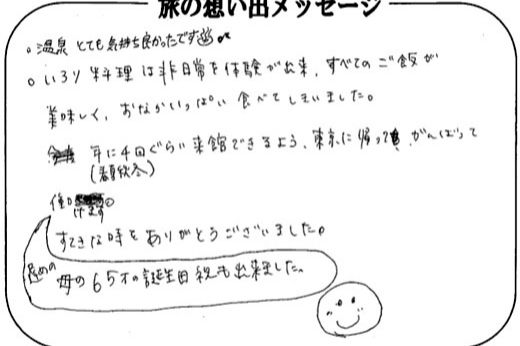 旅の想い出メッセージ
。温泉 とても気持ち良かったです
。いろり料理は非日常を体験が出来、すべてのご飯が
美味しく、おなかいっぱい食べてしまいました。
年に4回ぐらい来館できるよう、東京に帰っても、がんばって
(春夏秋冬)
働
けます。
すてきな時をありがとうございました。
母の65才の誕生日祝も出来ました。